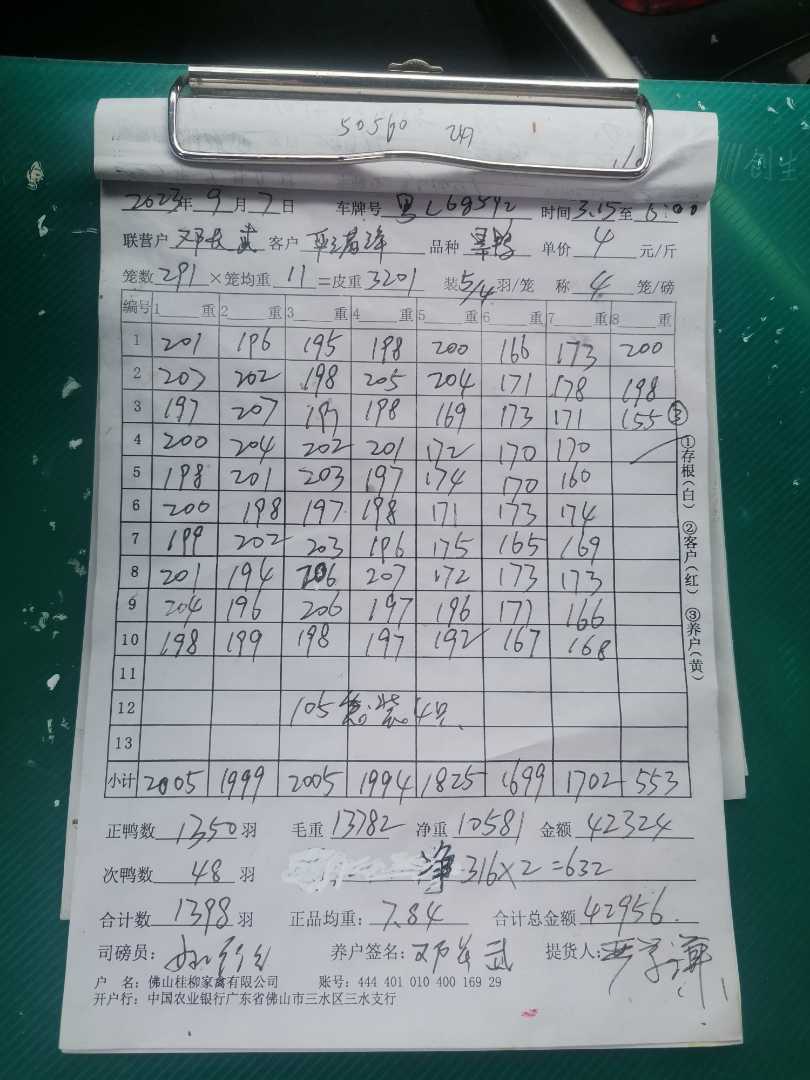 50560
创生
2023年9月7日 车牌号 粤L68592 时间3.15至6:00
联营户 邓长武 客户 品种 单价 4 元/斤
笼数291×笼均重 11 =皮重3201 装5/4羽/笼 称 4 笼/磅
编号 1 重 2 重 3 重 4 重 5 重 6 重 7 重 8 重
1 201 196 195 198 200 166 173 200
2 207 202 198 205 204 171 178 198
3 197 207 197 198 169 173 171 155 ③
4 200 204 202 201 172 170 170
5 198 201 203 197 174 170 160
6 200 198 197 198 171 173 174
7 199 202 203 196 175 165 169
8 201 194 206 207 172 173 173
9 204 196 206 197 196 171 166
10 198 199 198 197 192 167 168
11
12 105笼装4只
13
小计 2005 1999 2005 1994 1825 1699 1702 553
①存根(白) ②客户(红) ③养户(黄)
正鸭数 1350 羽 毛重 13782 净重 10581 金额 42324
次鸭数 48 羽 净316×2=632
合计数 1398 羽 正品均重: 7.84 合计总金额 42956.
司磅员: 养户签名: 邓长武 提货人:
户 名: 佛山桂柳家禽有限公司 账号: 444 401 010 400 169 29
开户行: 中国农业银行广东省佛山市三水区三水支行